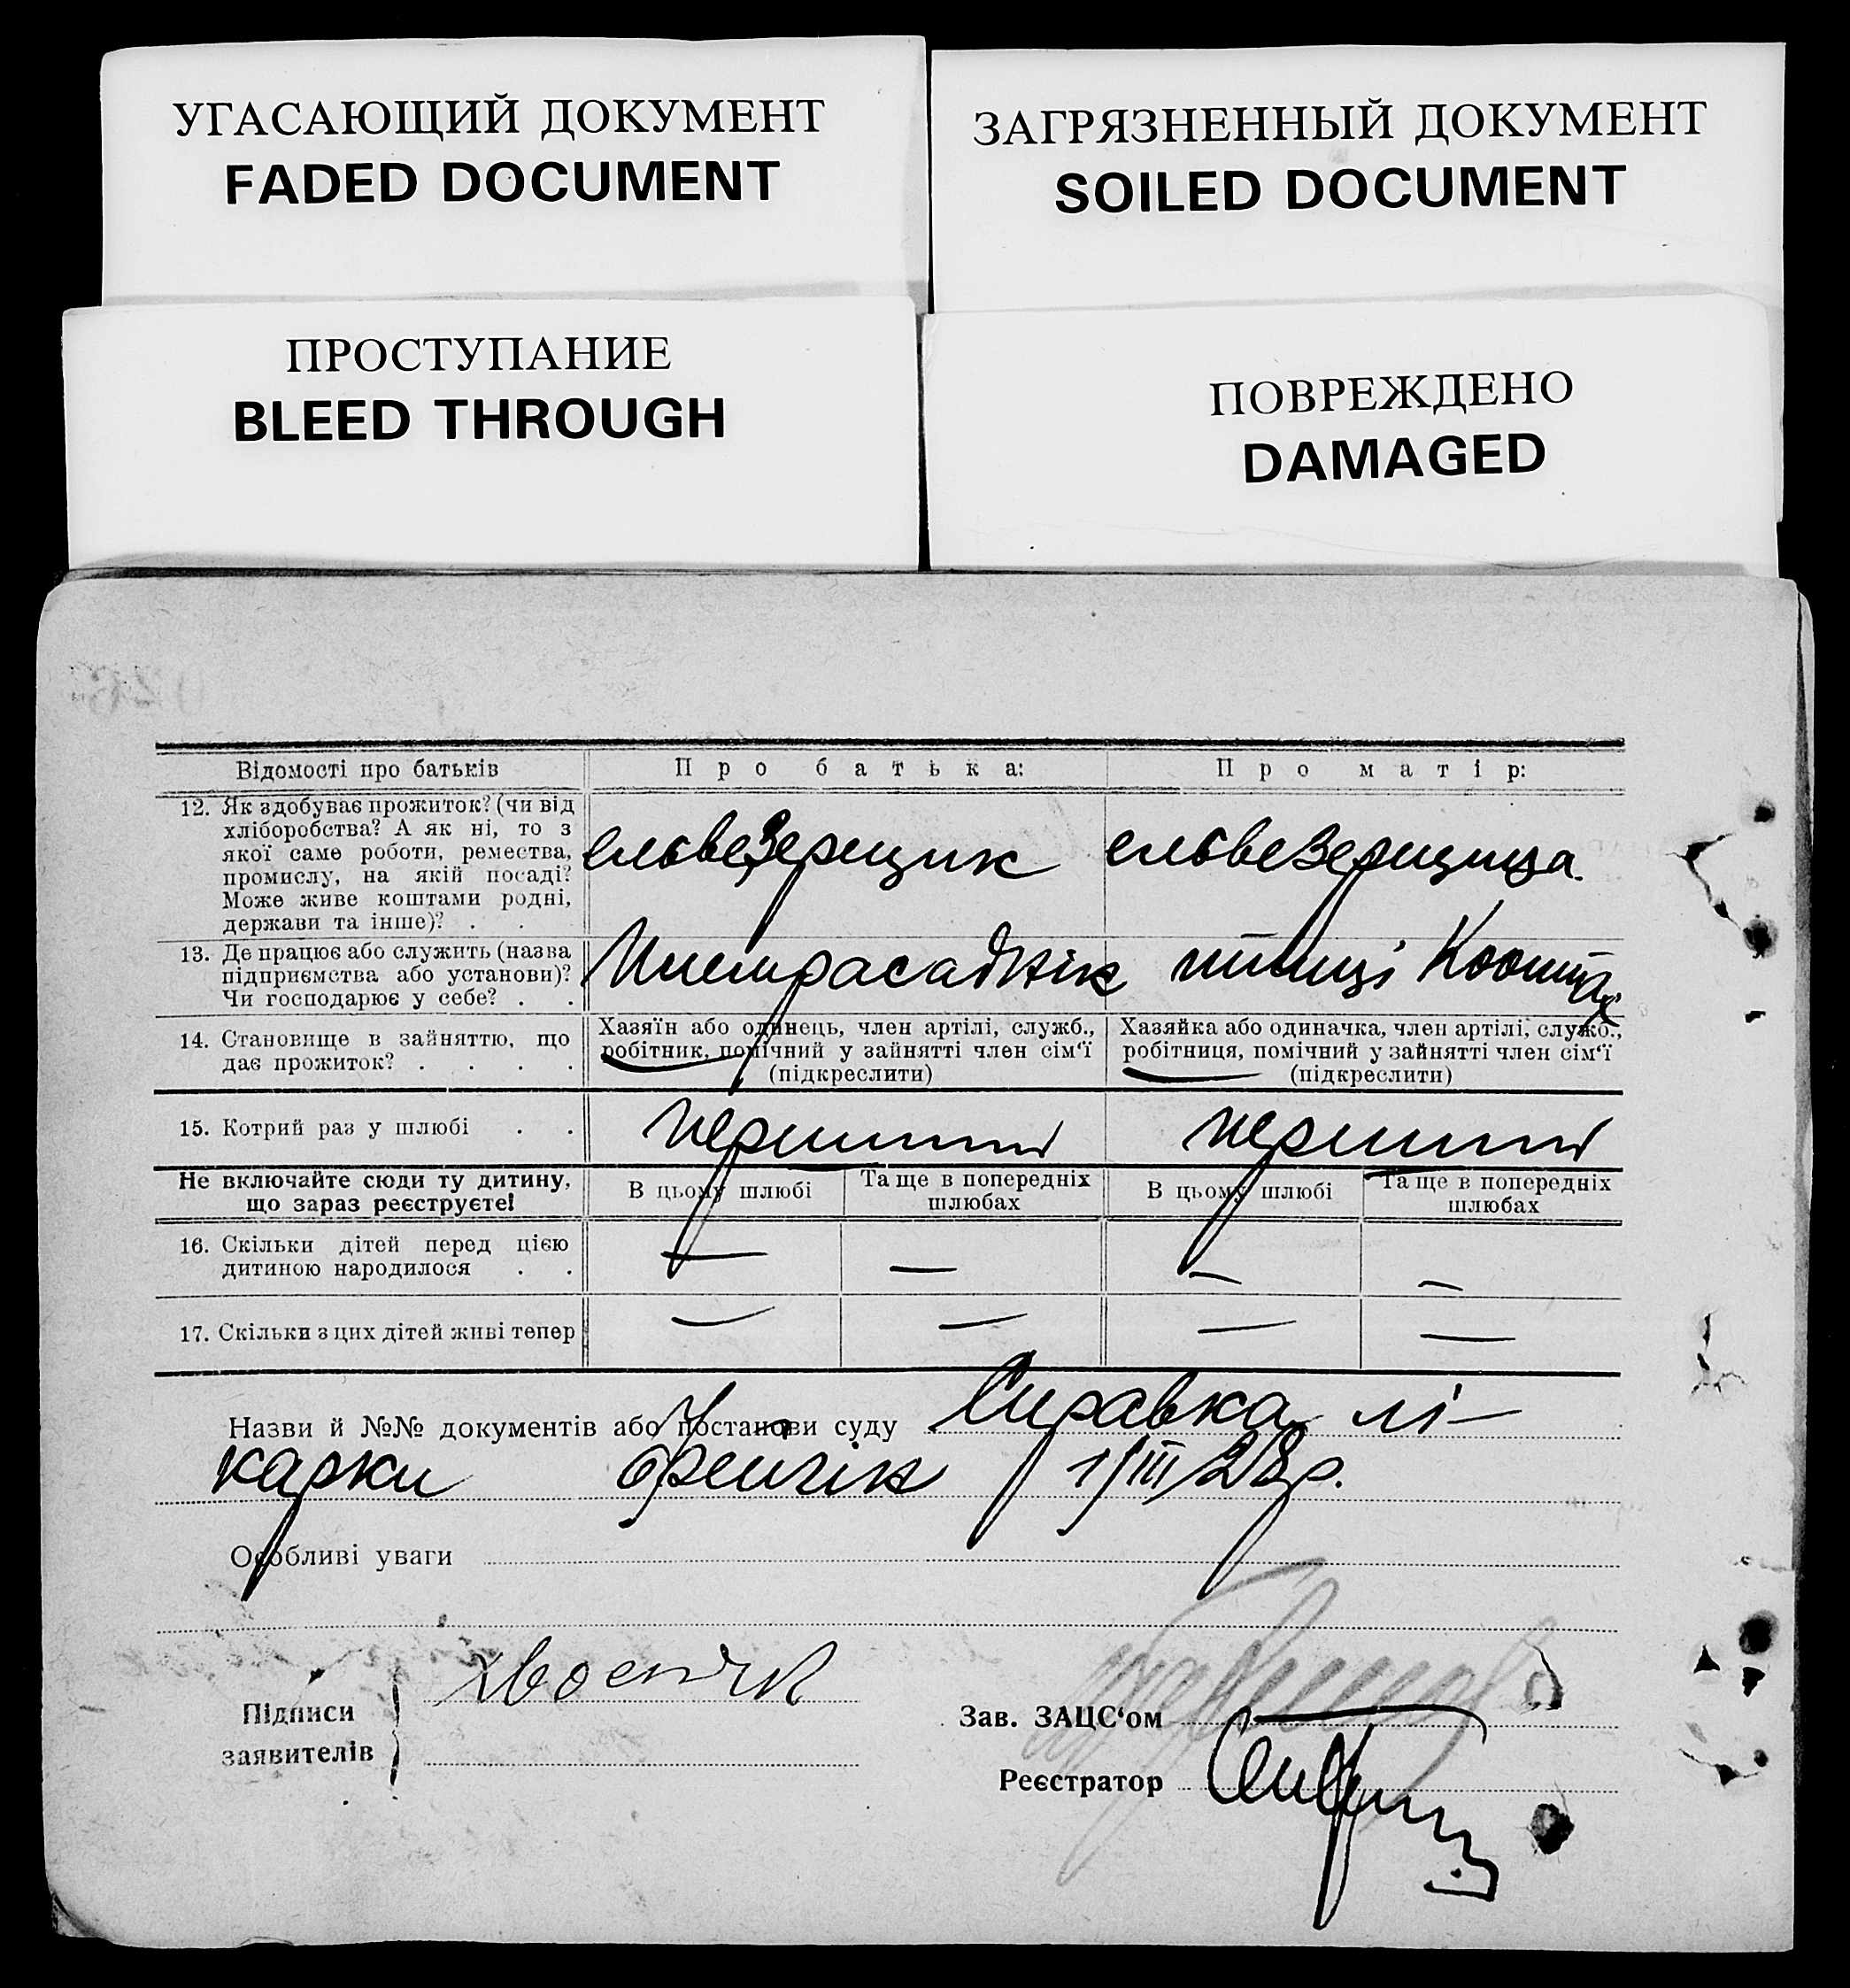 УГАСАЮЩИЙ ДОКУМЕНТ
FADED DOCUMENT
ЗАГРЯЗНЕННЫЙ ДОКУМЕНТ
SOILED DOCUMENT
ПРОСТУПАНИЕ
BLEED THROUGH
ПОВРЕЖДЕНО
DAMAGED
Відомості про батьків
Про батька:
Про матір:
12. Як здобуває прожиток? (чи від
хліборобства? А як ні, то з
якої саме роботи, ремества,
промислу, на якій посаді?
Може живе коштами родні,
держави та інше)? . .
13. Де працює або служить (назва
підприємства або установи)?
Чи господарює у себе? . .
птиці
14. Становище в зайняттю, що
дає прожиток? . . . .
Хазяїн або одинець, член артілі, служб.,
робітник, помічний у зайнятті член сім'ї
(підкреслити)
Хазяйка або одиначка, член артілі, служб.,
робітниця, помічний у зайнятті член сім'ї
(підкреслити)
15. Котрий раз у шлюбі . .
перший
перший
Не включайте сюди ту дитину,
що зараз реєструєте!
В цьому шлюбі
Та ще в попередніх
шлюбах
В цьому шлюбі
Та ще в попередніх
шлюбах
16. Скільки дітей перед цією
дитиною народилося . .
— — — —
17. Скільки з цих дітей живі тепер
— — — —
Назви й №№ документів або постанови суду Справка лі-
карки 1/III 28 р.
Особливі уваги
Підписи
заявителів
Зав. ЗАЦС'ом
Реєстратор